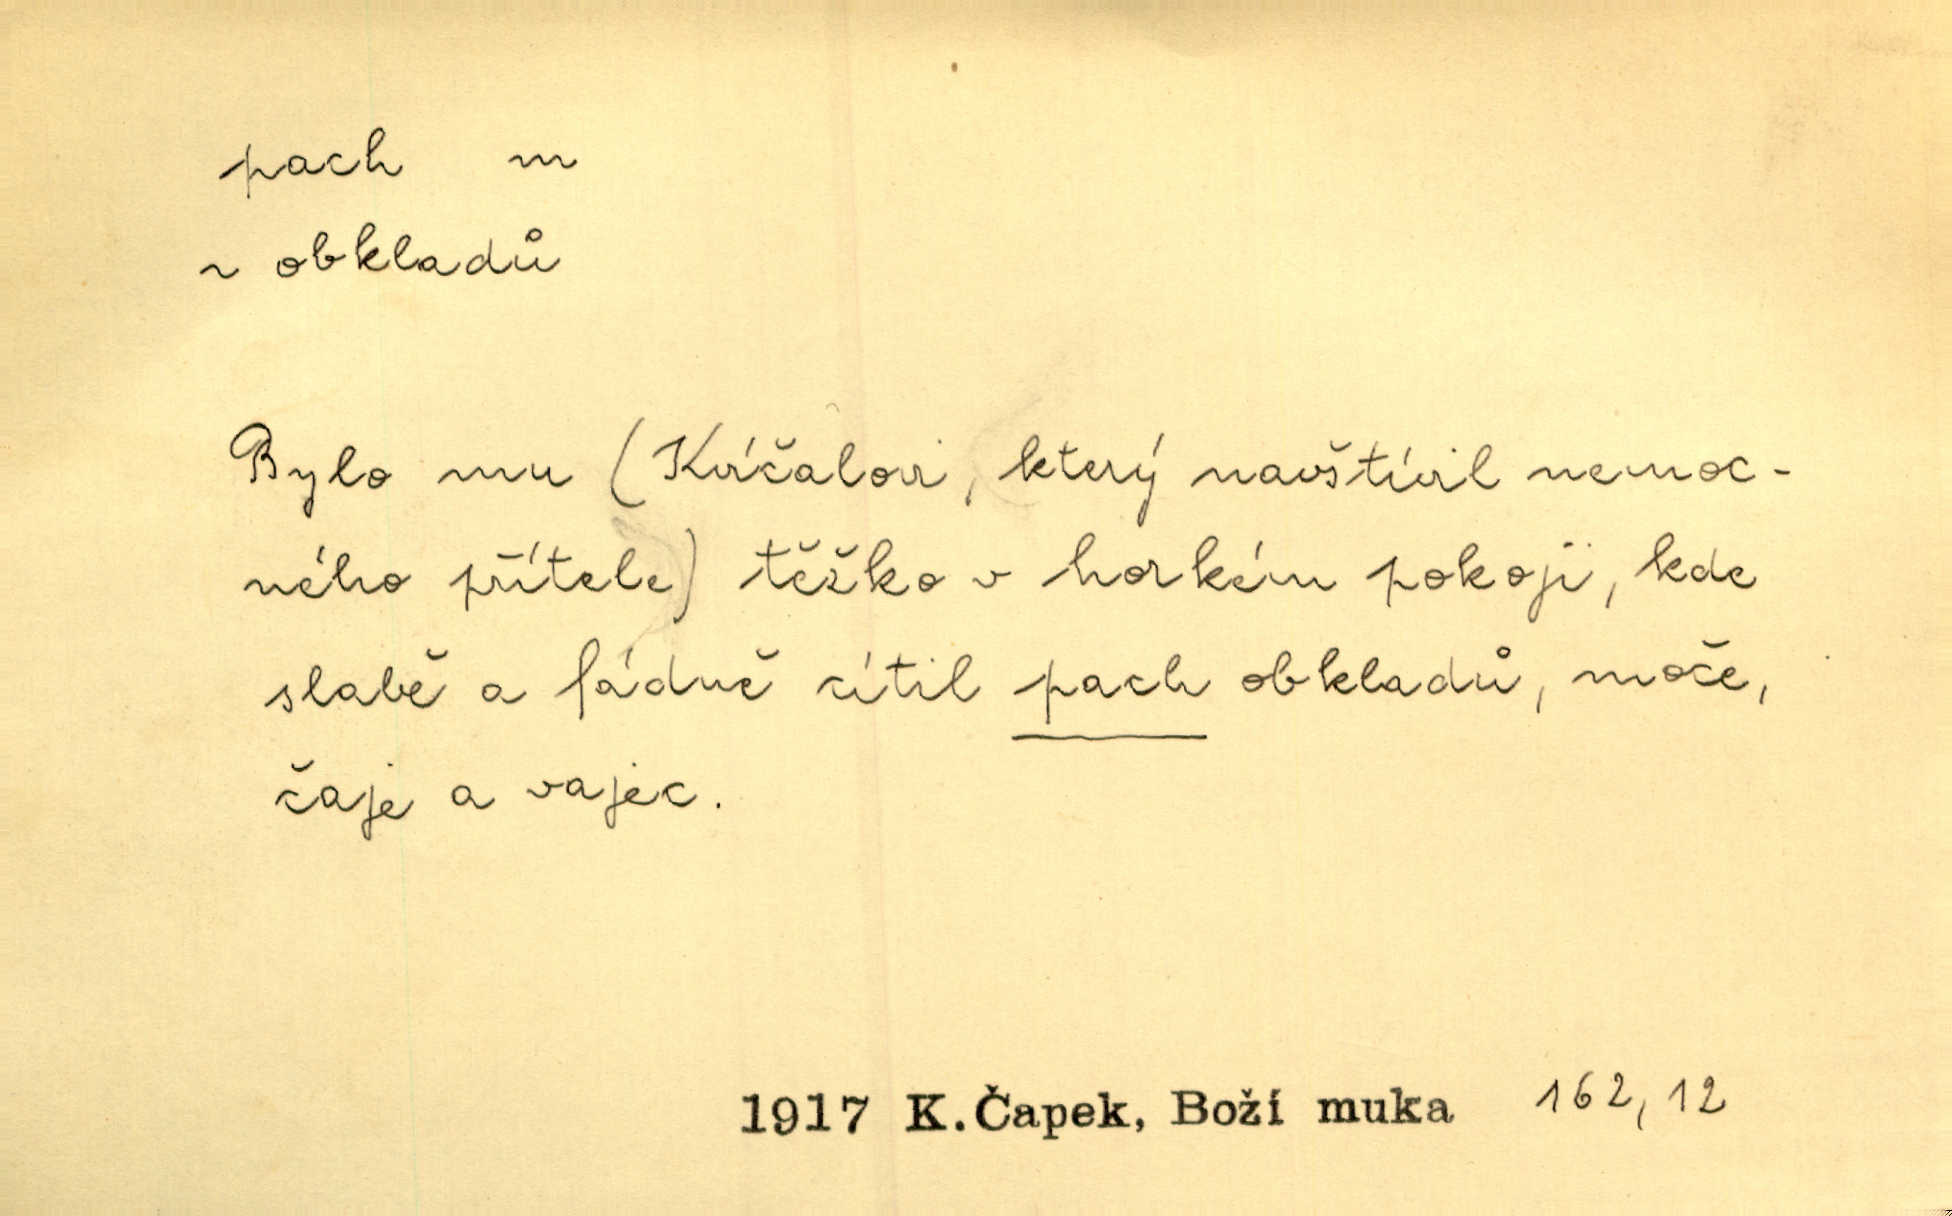 pach m
~ obkladů
Bylo mu (Kvíčalovi, který navštívil nemoc-
ného přítele) těžko v horkém pokoji, kde
slabě a fádně cítil pach obkladů, moče,
čaje a vajec.
1917 K. Čapek, Boží muka 162, 12